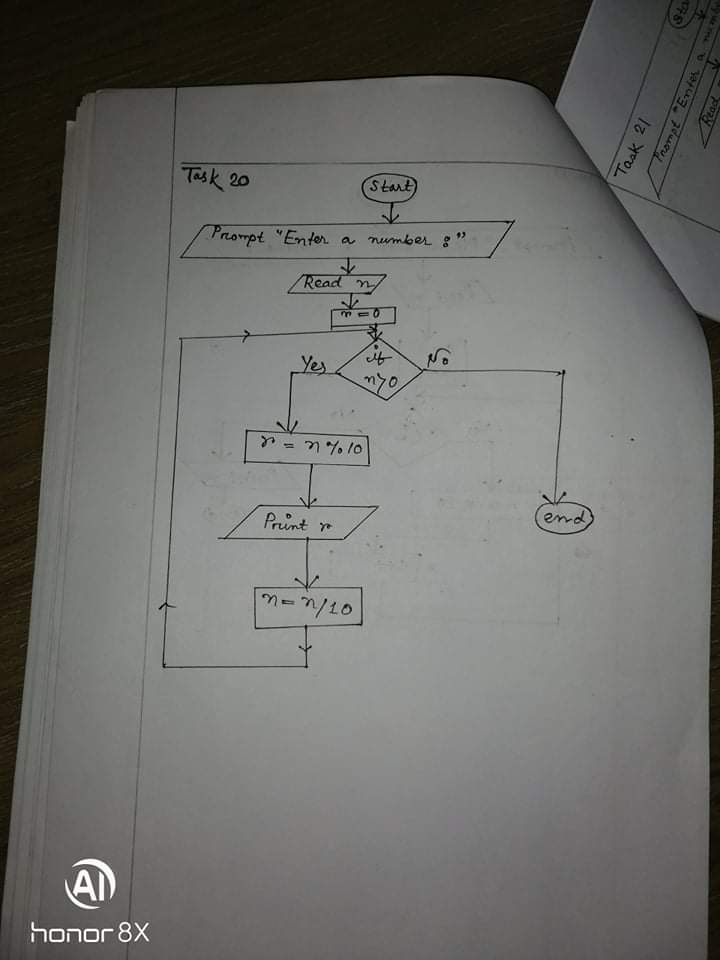 Task 20
Start
Prompt "Enter a number :"
Read n
r = 0
if
n>0
Yes
No
r = n % 10
Print r
n = n/10
end
Task 21
Prompt "Enter a num
Read
Star
AI
honor 8X